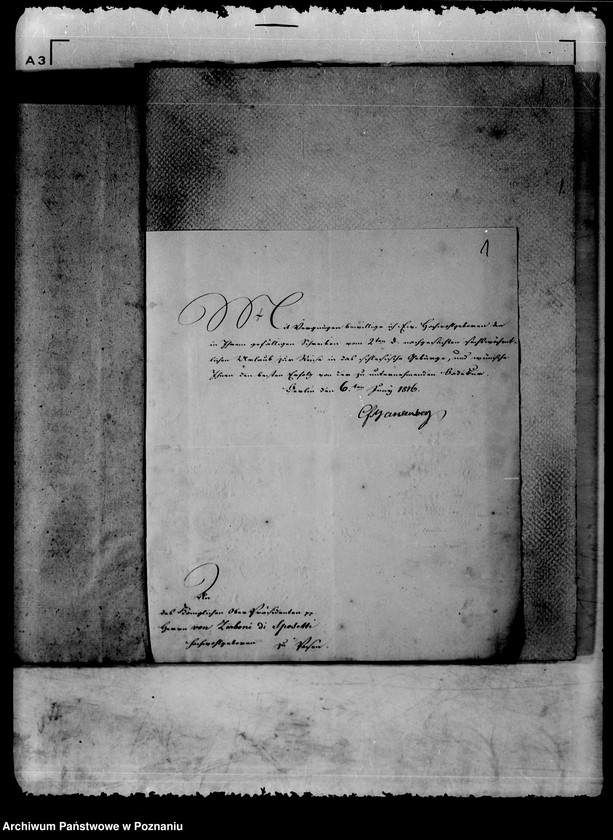 A 3
1
Mit Vergnügen bewillige ich Ew. Hochwohlgeboren den
in Ihrem gefälligen Schreiben vom 2ten d. nachgesuchten
lichen Urlaub zur Reise in das schlesische Gebirge, und wünsche
Ihnen den besten Erfolg von der zu unternehmenden Badekur.
Berlin den 6.ten Juny 1816.
CfvHardenberg
An
des Königlichen Ober-Präsidenten pp
Herrn von Zerboni di Sposetti
Hochwohlgeboren zu Posen.
Archiwum Państwowe w Poznaniu